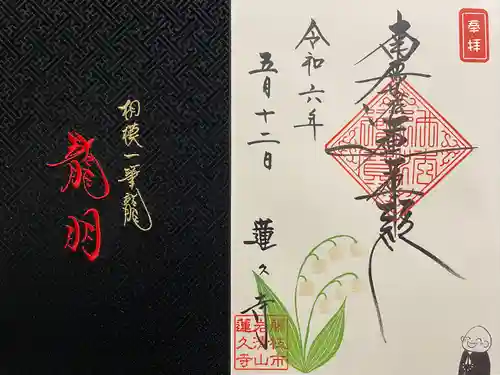 奉拝
南無妙法蓮華経
令和六年
五月十二日
蓮久寺
蓮久寺
相模一筆龍
龍羽